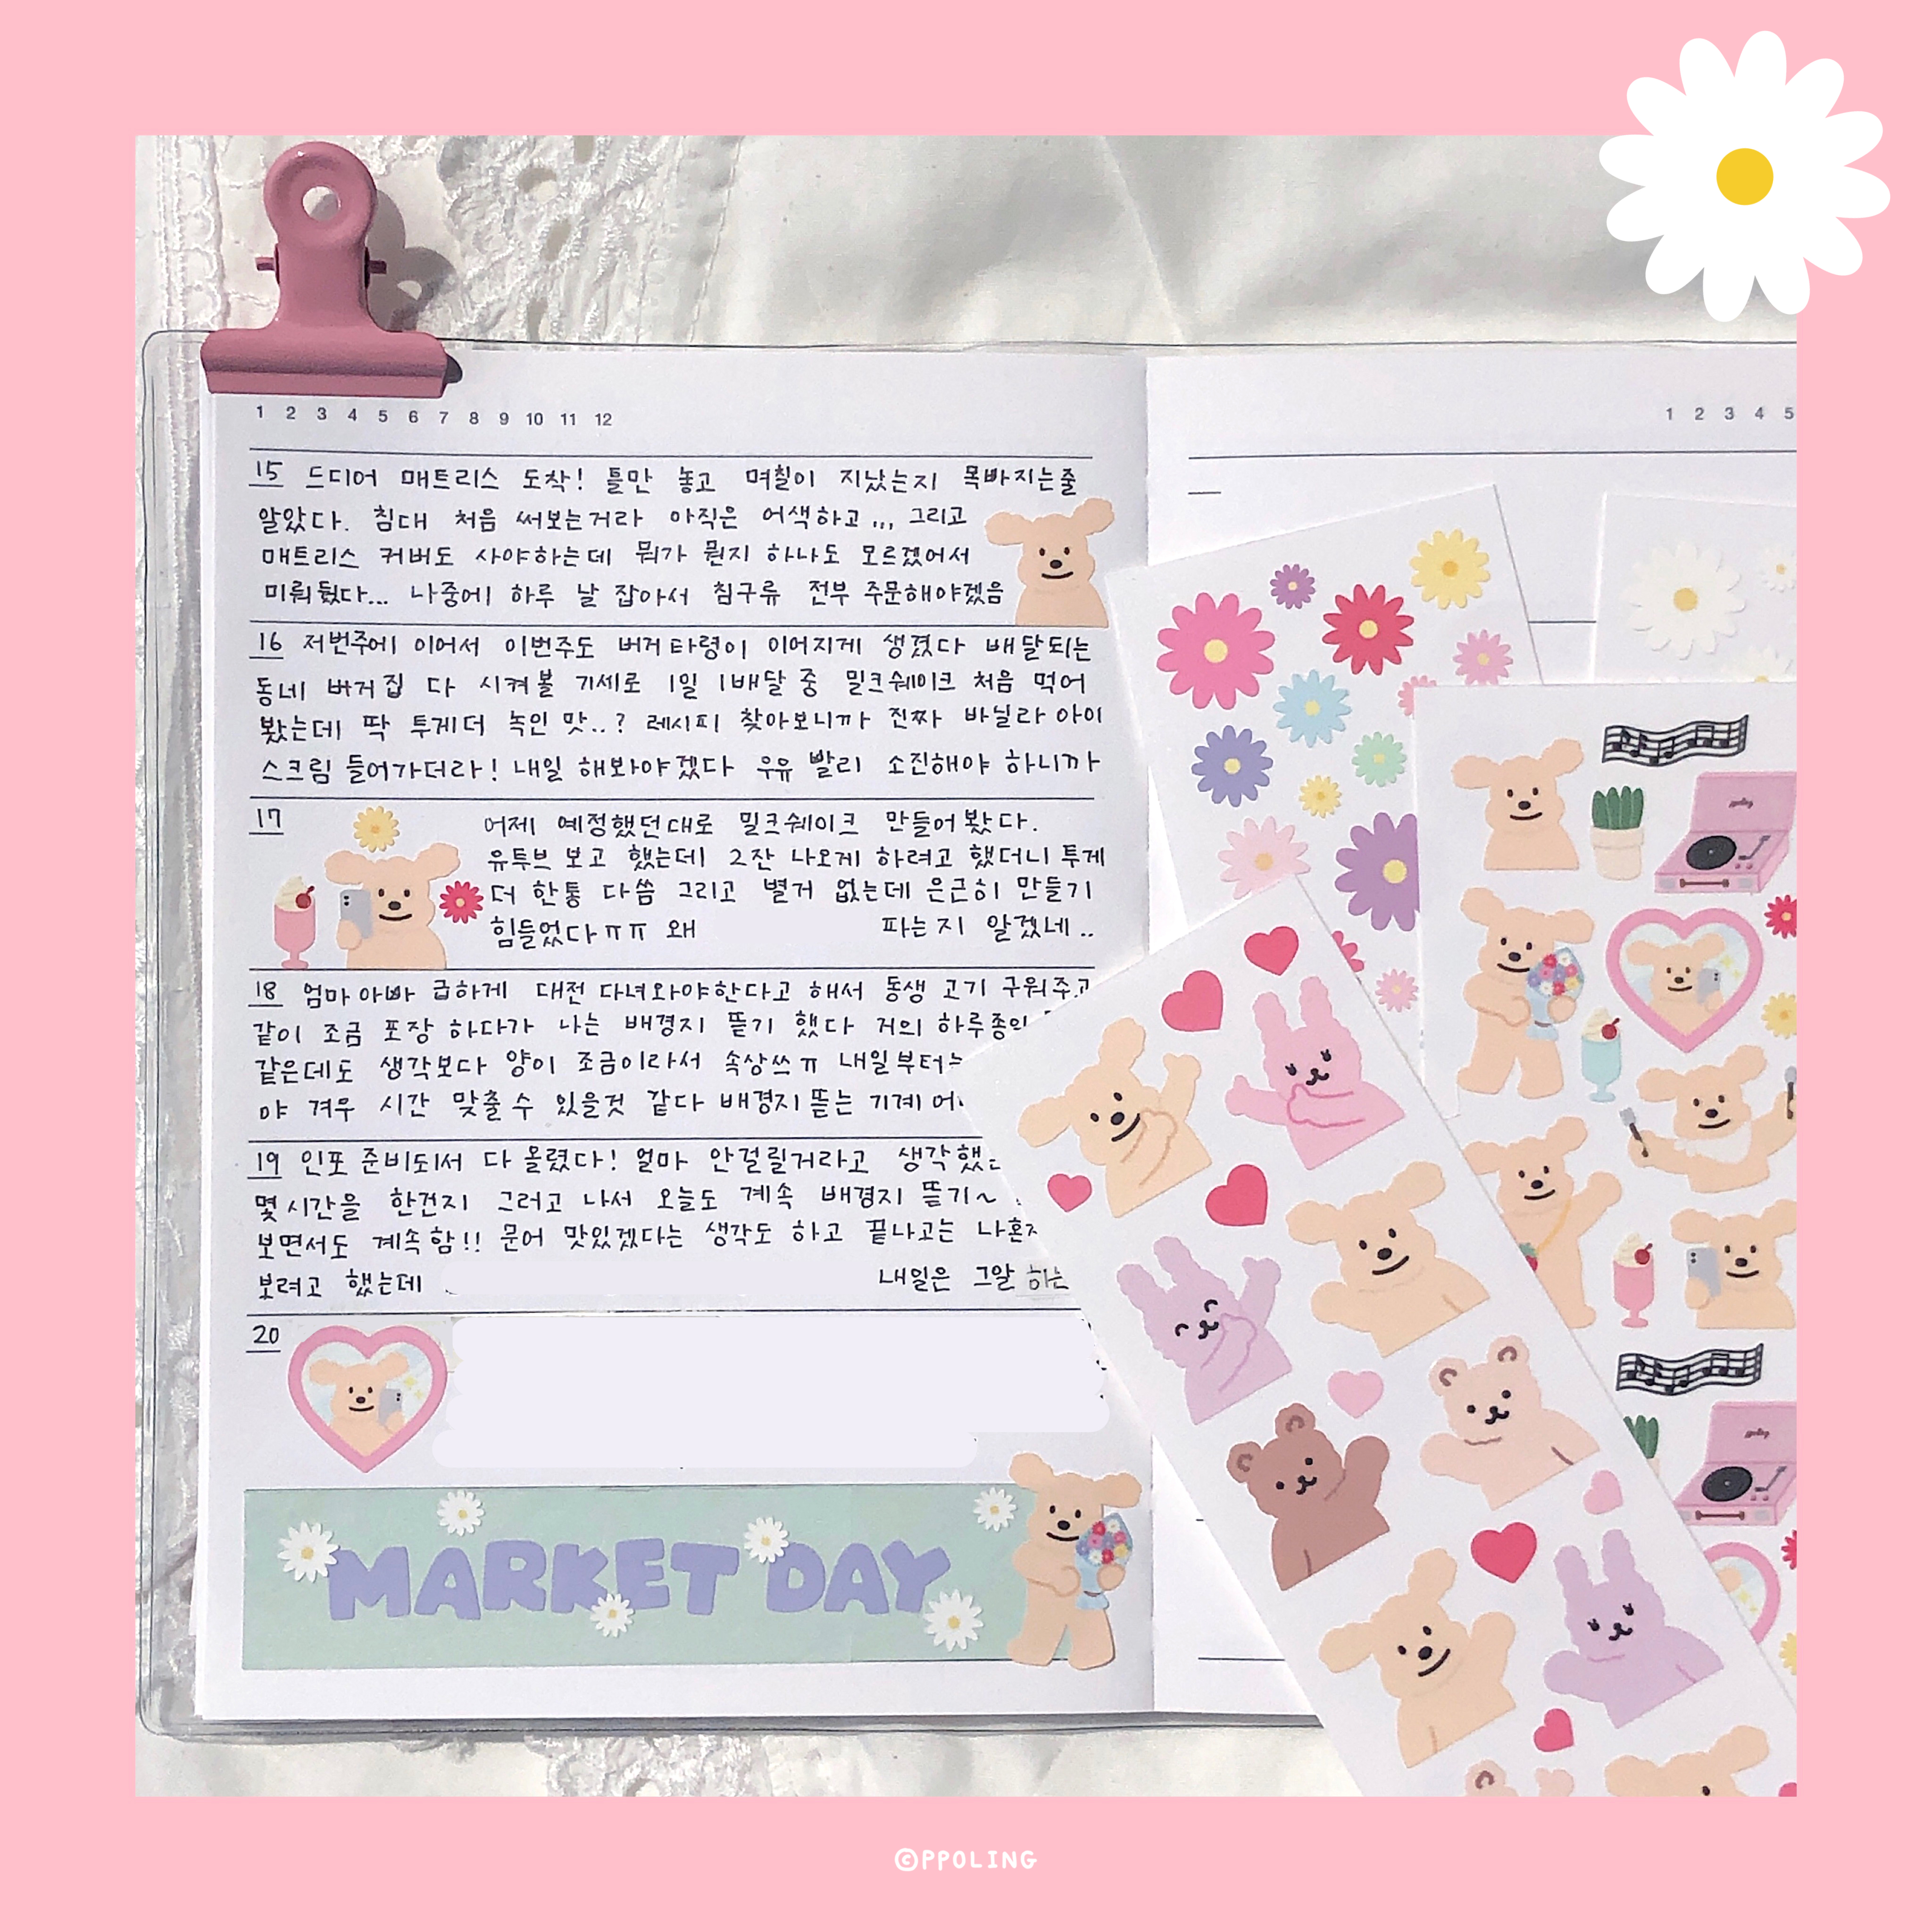 1 2 3 4 5 6 7 8 9 10 11 12
15 드디어 매트리스 도착! 틀만 놓고 며칠이 지났는지 목빠지는줄
알았다. 침대 처음 써보는거라 아직은 어색하고... 그리고
매트리스 커버도 사야하는데 뭐가 뭔지 하나도 모르겠어서
미뤄뒀다... 나중에 하루 날 잡아서 침구류 전부 주문해야겠음
16 저번주에 이어서 이번주도 버거타령이 이어지게 생겼다 배달되는
동네 버거집 다 시켜볼 기세로 1일 1배달 중 밀크쉐이크 처음 먹어
봤는데 딱 투게더 녹인 맛..? 레시피 찾아보니까 진짜 바닐라 아이
스크림 들어가더라! 내일 해봐야겠다 우유 빨리 소진해야 하니까
17 어제 예정했던대로 밀크쉐이크 만들어봤다.
유투브 보고 했는데 2잔 나오게 하려고 했더니 투게
더 한통 다씀 그리고 별거 없는데 은근히 만들기
힘들었다ㅠㅠ 왜 파는지 알겠네..
18 엄마아빠 급하게 대전 다녀와야한다고 해서 동생 고기 구워주고
같이 조금 포장 하다가 나는 배경지 뜯기 했다 거의 하루종일
같은데도 생각보다 양이 조금이라서 속상쓰ㅠ 내일부터는
야 겨우 시간 맞출수 있을것 같다 배경지뜯는 기계
19 인포 준비되서 다올렸다! 얼마 안걸릴거라고 생각했
몇시간을 한건지 그러고 나서 오늘도 계속 배경지 뜯기~
보면서도 계속함!! 문어 맛있겠다는 생각도 하고 끝나고는 나혼자
보려고 했는데 내일은 그알 하는
20
MARKET DAY
1 2 3 4 5
©PPOLING